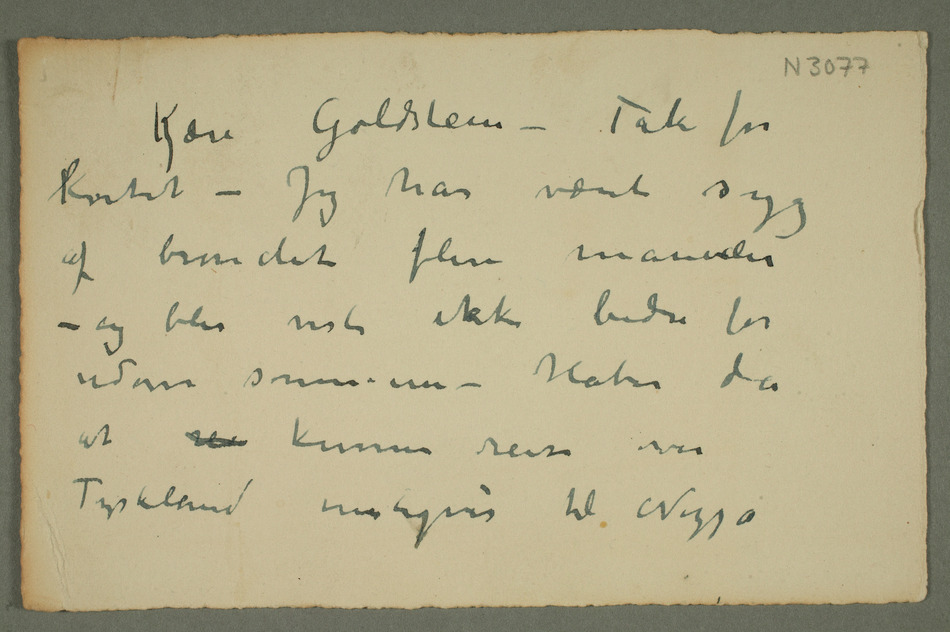 N 3077
Kære Goldstein – Tak for
Kortet – Jeg har vært syg
af bronchit flere maaneder
– og blir vist ikke bedre for
udover sommeren – Haber da
at kunne reise over
Tyskland muligvis til Nizza